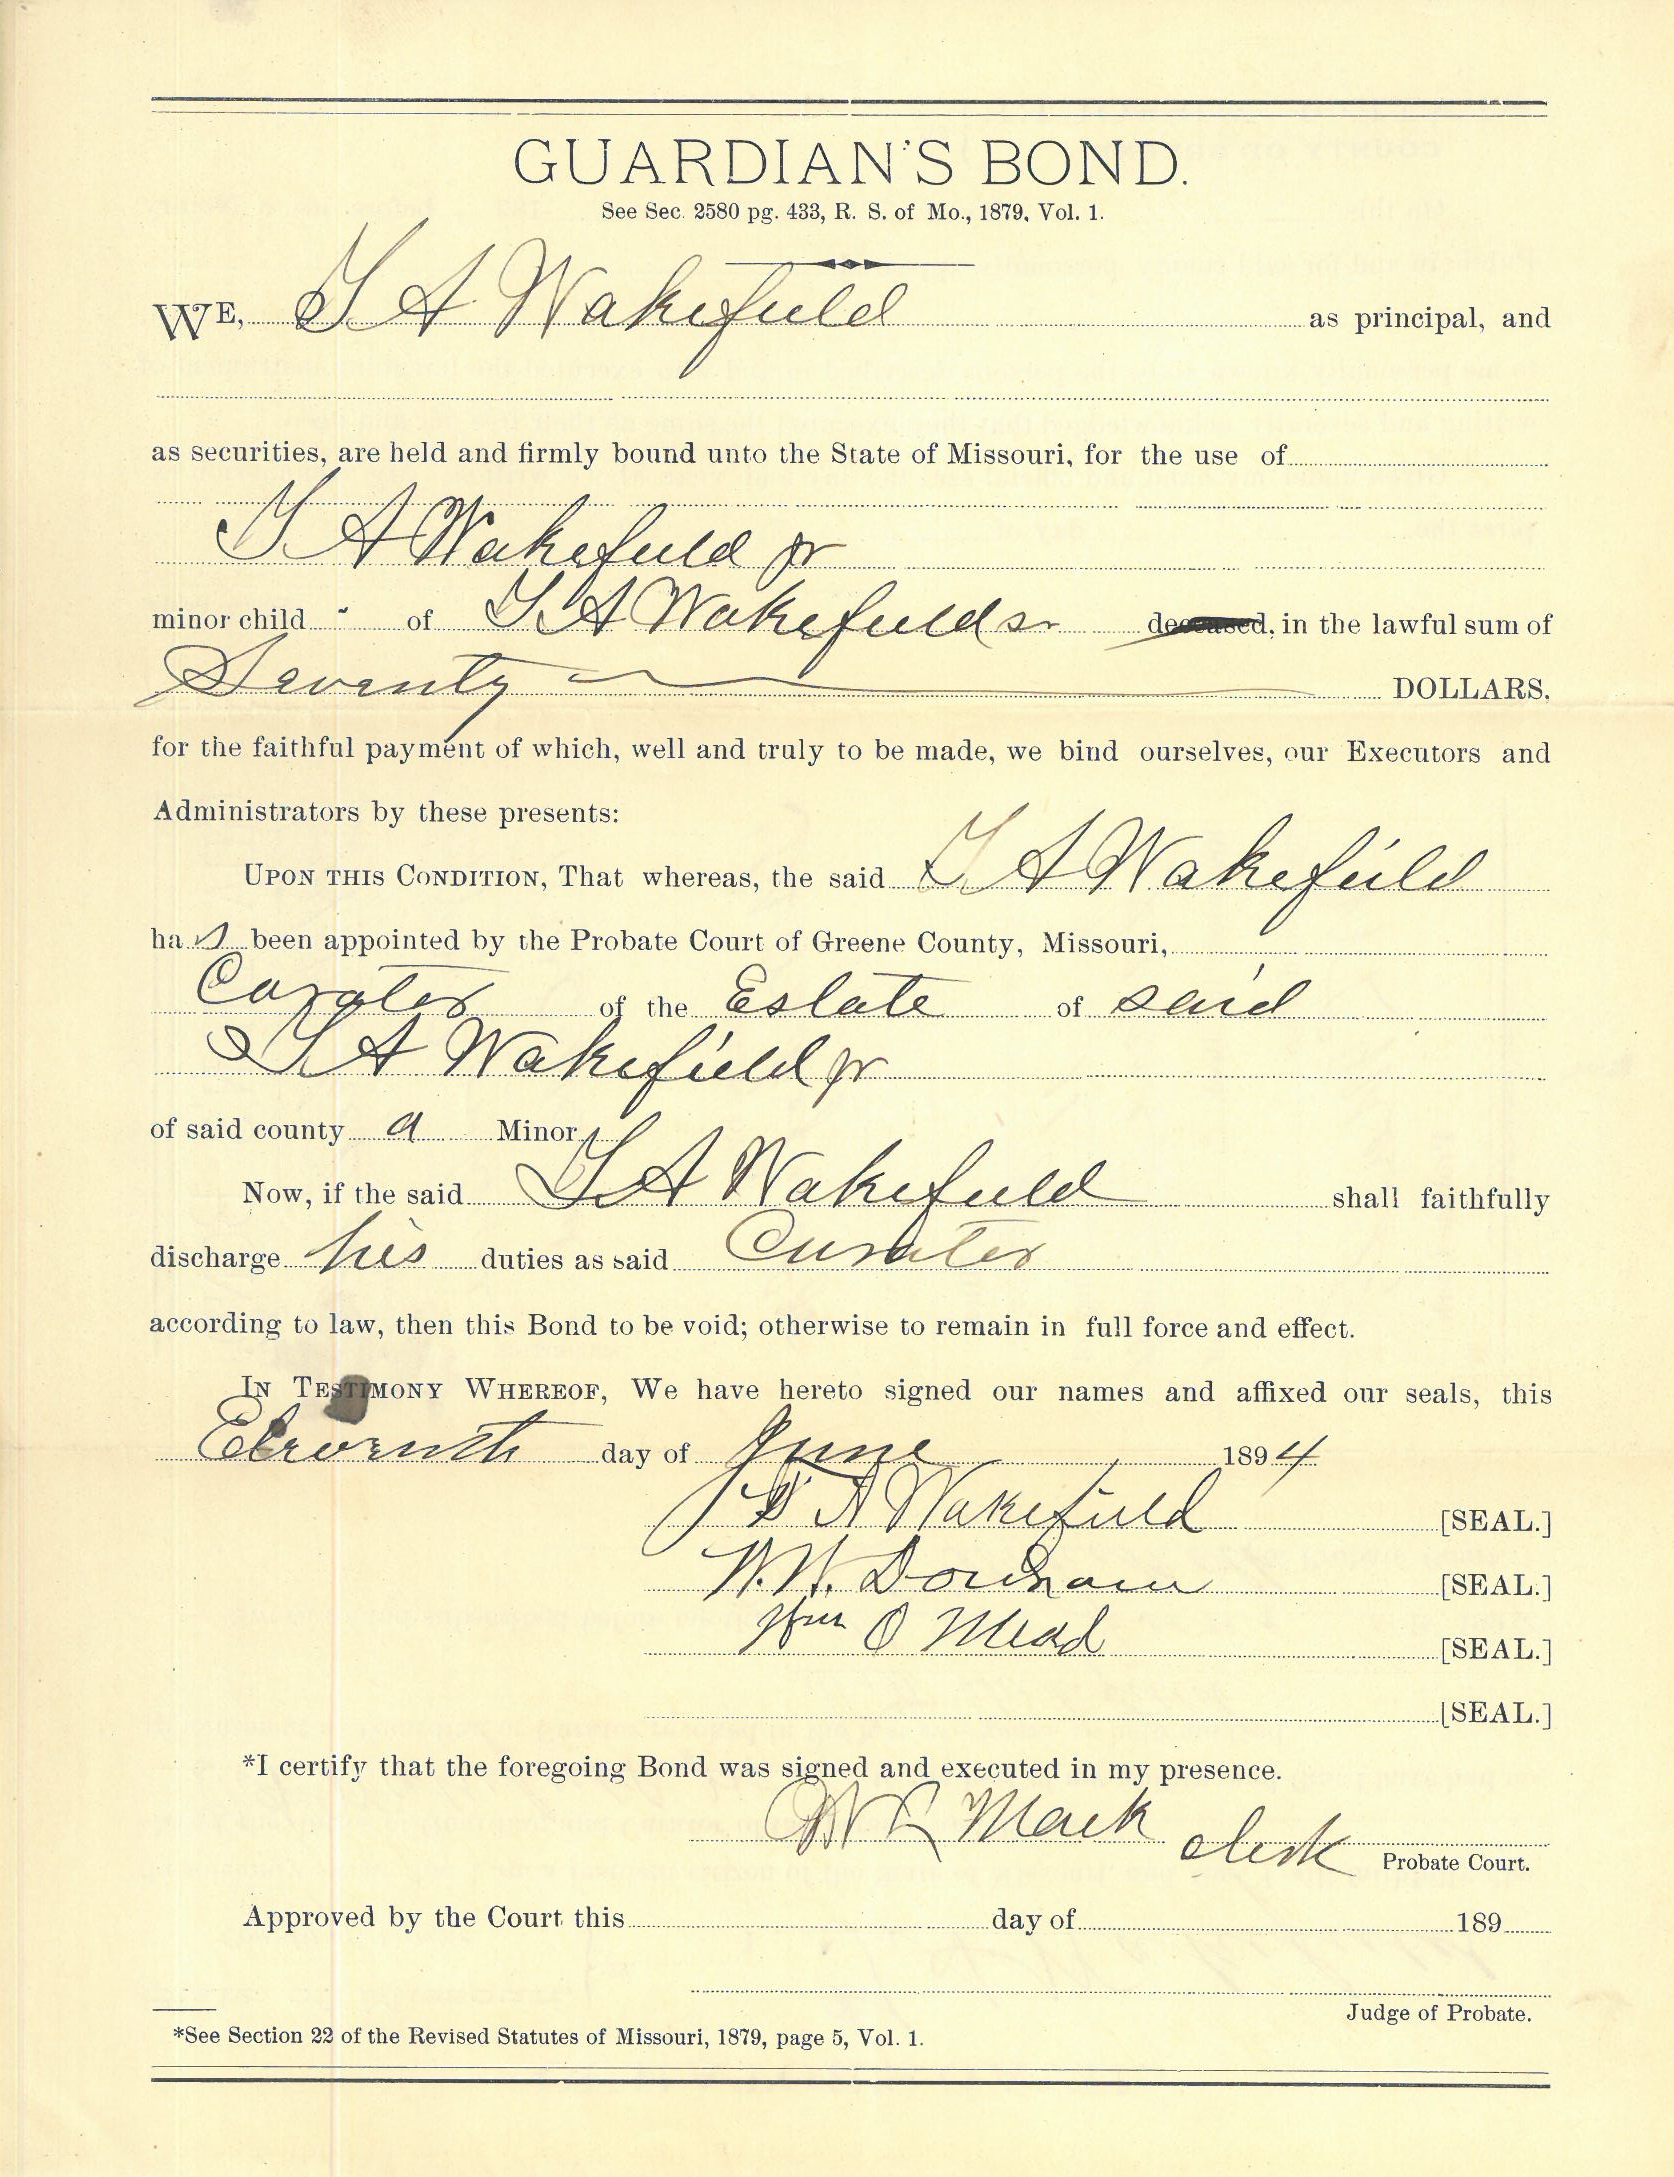 GUARDIAN'S BOND.
See Sec. 2580 pg. 433, R. S. of Mo., 1879, Vol. 1.
WE, A Wakefield as principal, and
as securities, are held and firmly bound unto the State of Missouri, for the use of
A Wakefield jr
minor child " of A Wakefield sr deceased, in the lawful sum of
Seventy DOLLARS,
for the faithful payment of which, well and truly to be made, we bind ourselves, our Executors and
Administrators by these presents:
UPON THIS CONDITION, That whereas, the said A Wakefield
has been appointed by the Probate Court of Greene County, Missouri,
Curator of the Estate of said
A Wakefield jr
of said county a Minor
Now, if the said A Wakefield shall faithfully
discharge his duties as said Curator
according to law, then this Bond to be void; otherwise to remain in full force and effect.
IN TESTIMONY WHEREOF, We have hereto signed our names and affixed our seals, this
Eleventh day of June 1894
A Wakefield [SEAL.]
W. W. [SEAL.]
Wm O Mead [SEAL.]
[SEAL.]
*I certify that the foregoing Bond was signed and executed in my presence.
Mack clerk Probate Court.
Approved by the Court this day of 189
Judge of Probate.
*See Section 22 of the Revised Statutes of Missouri, 1879, page 5, Vol. 1.